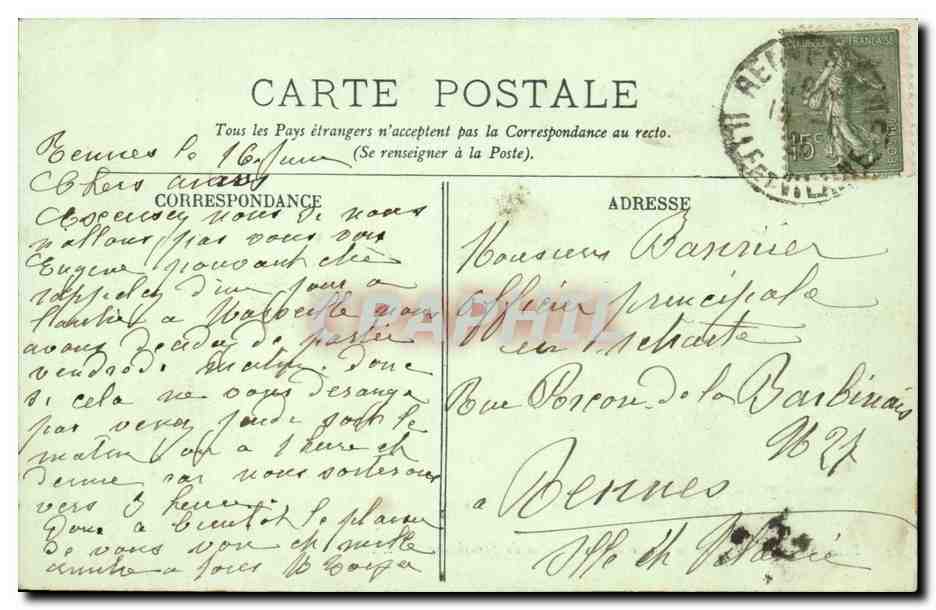 CARTE POSTALE
Tous les Pays étrangers n'acceptent pas la Correspondance au recto.
(Se renseigner à la Poste).
Rennes le 16 Juin
Chers amis
CORRESPONDANCE
Excusez nous si nous
n'allons pas vous voir
Eugène pouvant être
rappeler d'un jour a
l'autre a Marseille nous
avons décidez de partir
vendredi matin donc
si cela ne vous dérange
pas venez jeudi soit le
matin ou a 1 heure et
demie car nous sortirons
vers 3 heures.
Donc a bientot le plaisir
de vous voir et mille
amitié a tous
ADRESSE
Monsieur Bannier
officier principale
en retraite
Rue Porcon de la Barbinais
N 27
a Rennes
Ille et Vilaine
RENNES
ILLE-ET-VILAINE
FRANÇAISE
15c
CPAPHIL